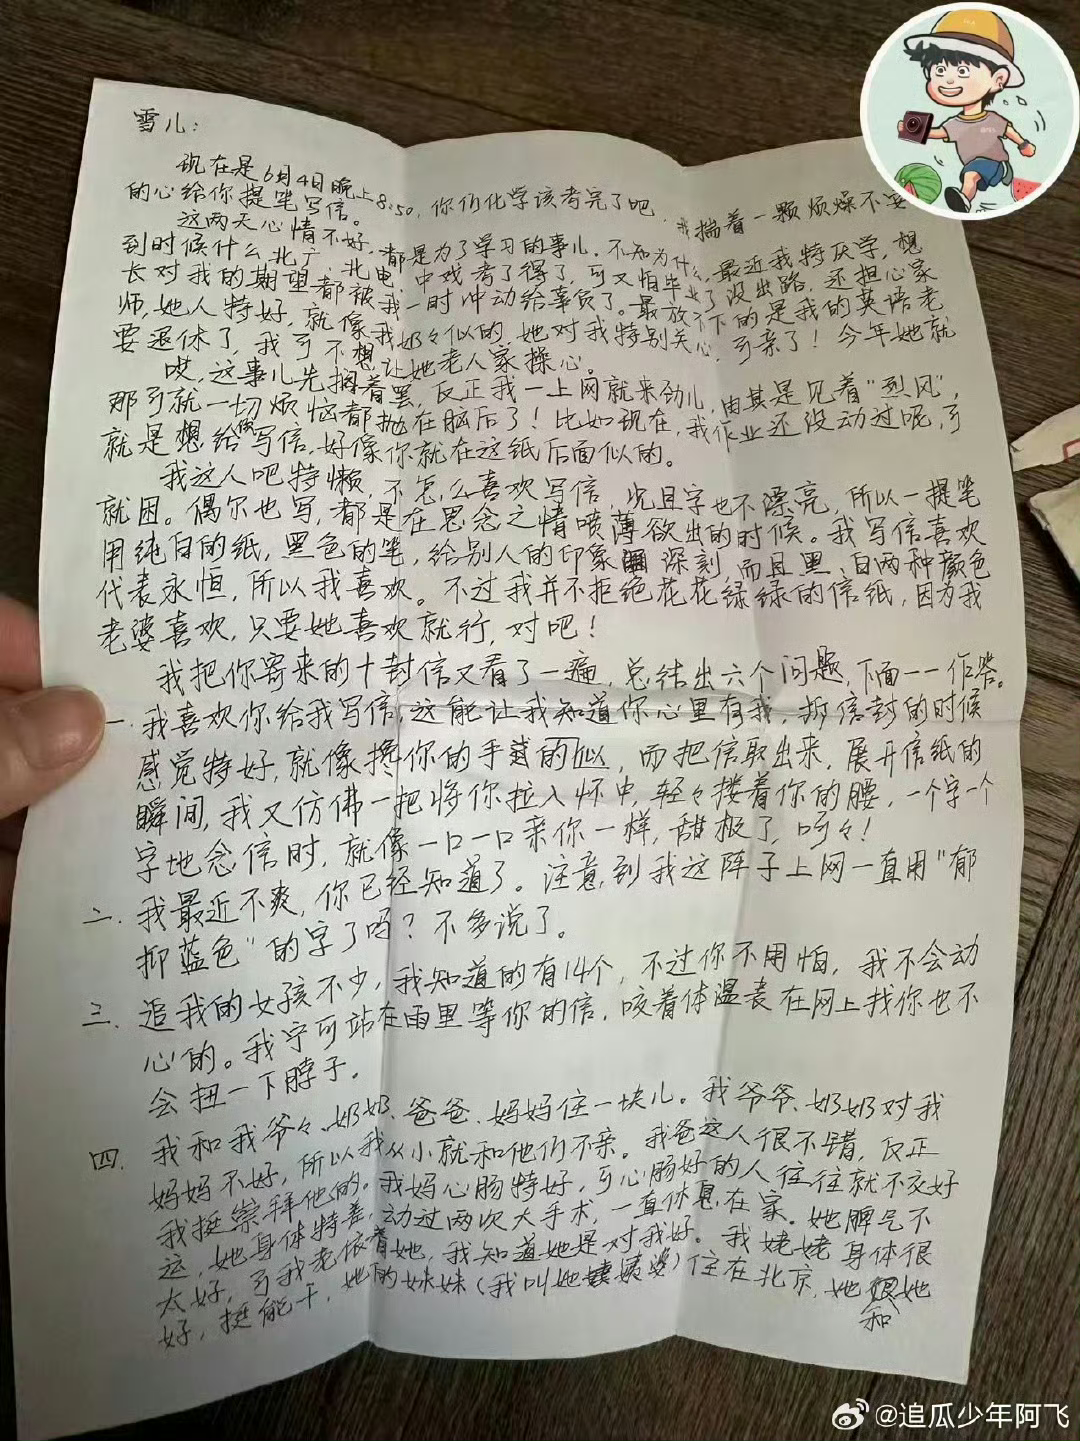 雪儿：
现在是6月4日晚上8:50，你们化学该考完了吧，我揣着一颗烦燥不安
的心给你提笔写信。
这两天心情不好，都是为了学习的事儿。不知为什么，最近我特厌学，想
到时候什么北广、北电、中戏考了得了，可又怕毕业了没出路，还担心家
长对我的期望都被我一时冲动给辜负了。最放不下的是我的英语老
师，她人特好，就像我奶々似的，她对我特别关心，可亲了！今年她就
要退休了，我可不想让她老人家操心。
哎，这事儿先搁着罢，反正我一上网就来劲儿，由其是见着"烈风"，
那可就一切烦恼都抛在脑后了！比如现在，我作业还没动过呢，可
就是想给你写信，好像你就在这纸后面似的。
我这人吧特懒，不怎么喜欢写信，况且字也不漂亮，所以一提笔
就困。偶尔也写，都是在思念之情喷薄欲出的时候。我写信喜欢
用纯白的纸，黑色的笔，给别人的印象深刻，而且黑、白两种颜色
代表永恒，所以我喜欢。不过我并不拒绝花花绿绿的信纸，因为我
老婆喜欢，只要她喜欢就行，对吧！
我把你寄来的十封信又看了一遍，总结出六个问题，下面一一作答。
一．我喜欢你给我写信，这能让我知道你心里有我，拆信封的时候
感觉特好，就像搀你的手似的，而把信取出来，展开信纸的
瞬间，我又仿佛一把将你拉入怀中，轻々搂着你的腰，一个字一个
字地念信时，就像一口一口亲你一样，甜极了，呵々！
二．我最近不爽，你已经知道了。注意到我这阵子上网一直用"郁
抑蓝色"的字了吗？不多说了。
三．追我的女孩不少，我知道的有14个，不过你不用怕，我不会动
心的。我宁可站在雨里等你的信，咬着体温表在网上找你也不
会扭一下脖子。
四．我和我爷々、奶奶、爸爸、妈妈住一块儿。我爷爷、奶奶对我
妈妈不好，所以我从小就和他们不亲。我爸这人很不错，反正
我挺崇拜他的。我妈心肠特好，可心肠好的人往往就不交好
运，她身体特差，动过两次大手术，一直休息在家。她脾气不
太好，可我老依着她，我知道她是对我好。我姥姥身体很
好，挺能干，她的妹妹（我叫她姨婆）住在北京，她和她
@追瓜少年阿飞